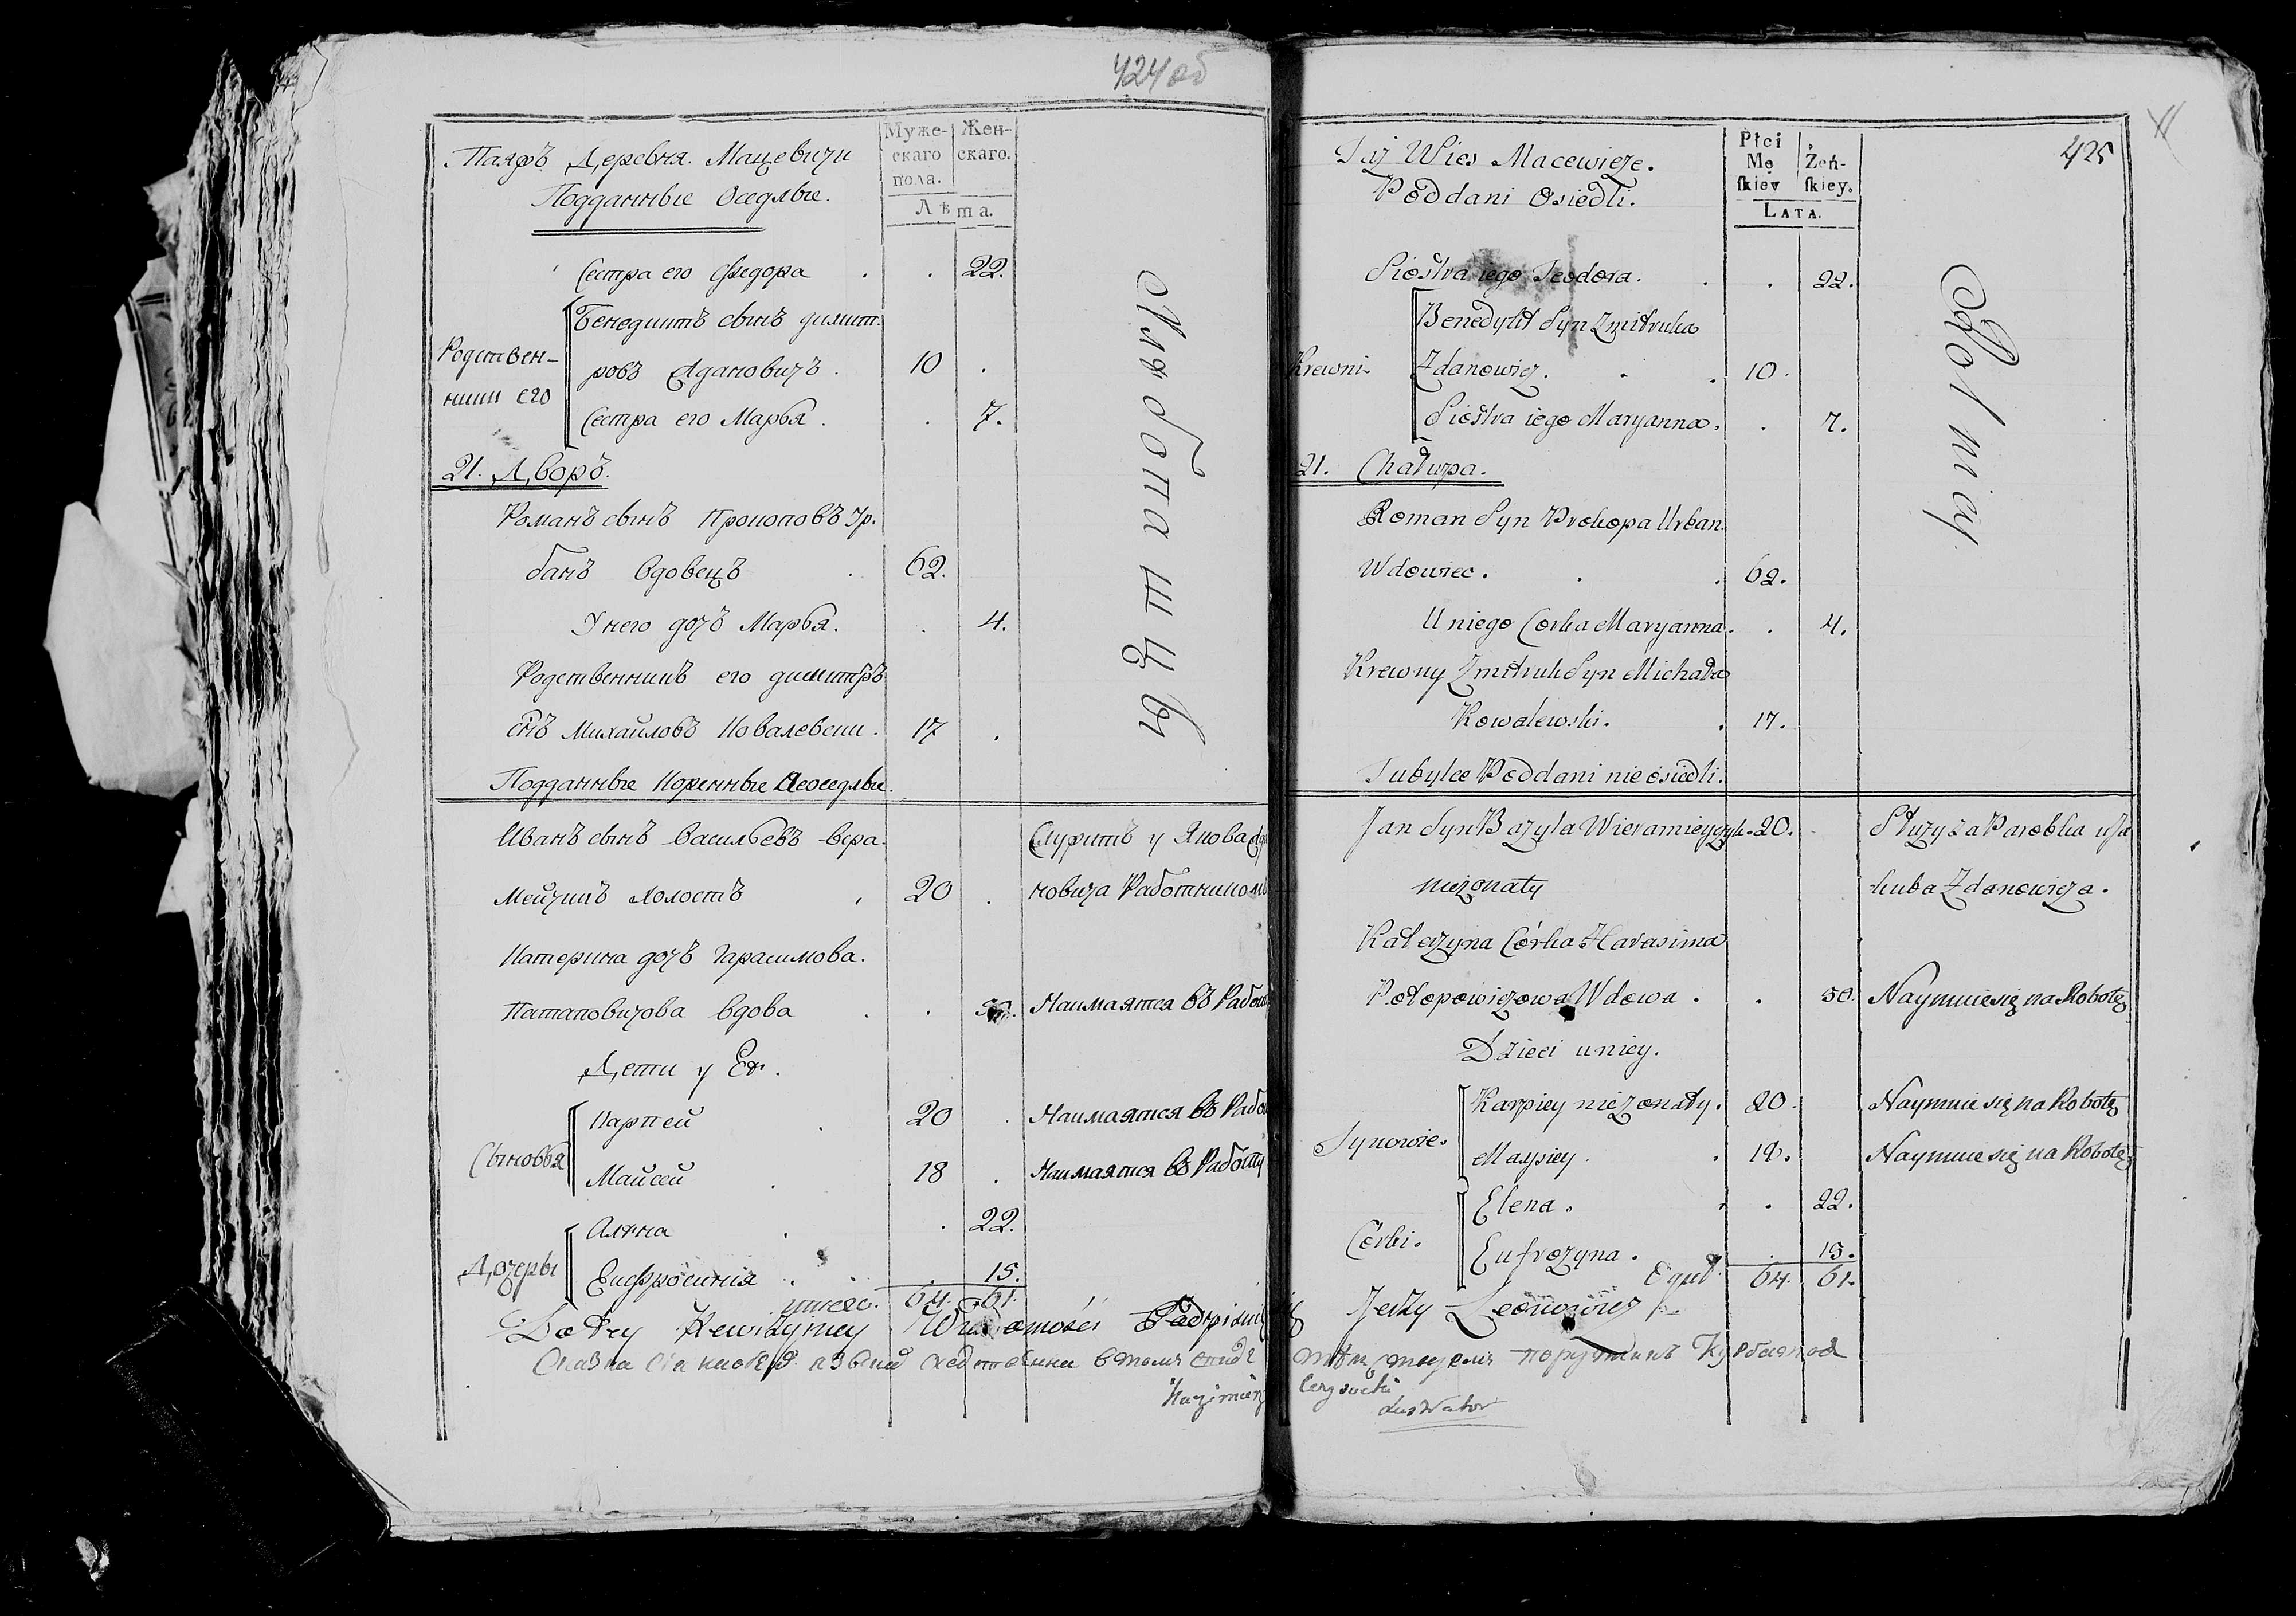 424 об
Таяжъ Деревня. Мацевичи
Подданныіе Оседлыіе.
Муже-
скаго
пола.
Жен-
скаго.
Лѣта.
Сестра его Федора . . 22.
Родствен-
ники его
Бенедиктъ сынъ димит-
ровъ Ждановичъ . 10 .
Сестра его Марья . . 7.
21. Дворъ.
Романъ сынъ Прокоповъ Ур-
банъ вдовецъ . 62.
У него дочь Марья. . 4.
Родственникъ его димитръ
сынъ Михайловъ Ковалевски . 17 .
Подданныіе коренныіе Неоседлыіе.
Иванъ сынъ васильевъ вера-
Служитъ у Якова
мейчикъ холостъ , 20 .
новича Работникомъ
Катерина дочь Гарасимова.
Патаповичова вдова . .
Наимается въ
Дети у Её.
Сыновья
Карпей . 20 . Наимается въ
Майсей . 18 . Наимается въ Работу
Дочеры
Аляна . . 22.
Ецфросиния . . 15.
64. 61.
Хлѣбопашцы
425
Taż Wies Macewicze.
Poddani Osiedli.
Płci
Mę
skiey
Żeń-
skiey.
LATA.
Siostra iego Teodora. . . 22.
Krewni
Benedykt Syn Zmitruka
Zdanowicz. . . 10.
Siostra iego Maryanna. . 7.
21. Chałupa.
Roman Syn Prokopa Urban
Wdowiec. . . 62.
U niego Corka Maryanna. . 4.
Krewny Zmitruk Syn Michała
Kowalewski. . 17.
Tubylce Poddani nie osiedli.
Jan Syn Bazyla Wieramieyczyk. 20.
Służy za Parobka u Ja
nieżonaty
kuba Zdanowicza.
Katerzyna Córka Harasima
Potopowiczowa Wdowa . . 50. Naymuie się na Robotę
Dzieci u niey.
Synowie.
Karpiey nieżonaty. 20. Naymuie się na Robotę
Maysiey . . 18. Naymuie się na Robotę
Córki.
Elena. . . 22.
Eufrozyna. . 15.
64. 61.
Rolnicy
Do tey Rewizyiney Wiadomości Podpisuię się Jerzy Leonowicz
Kazimierz
Lustrator